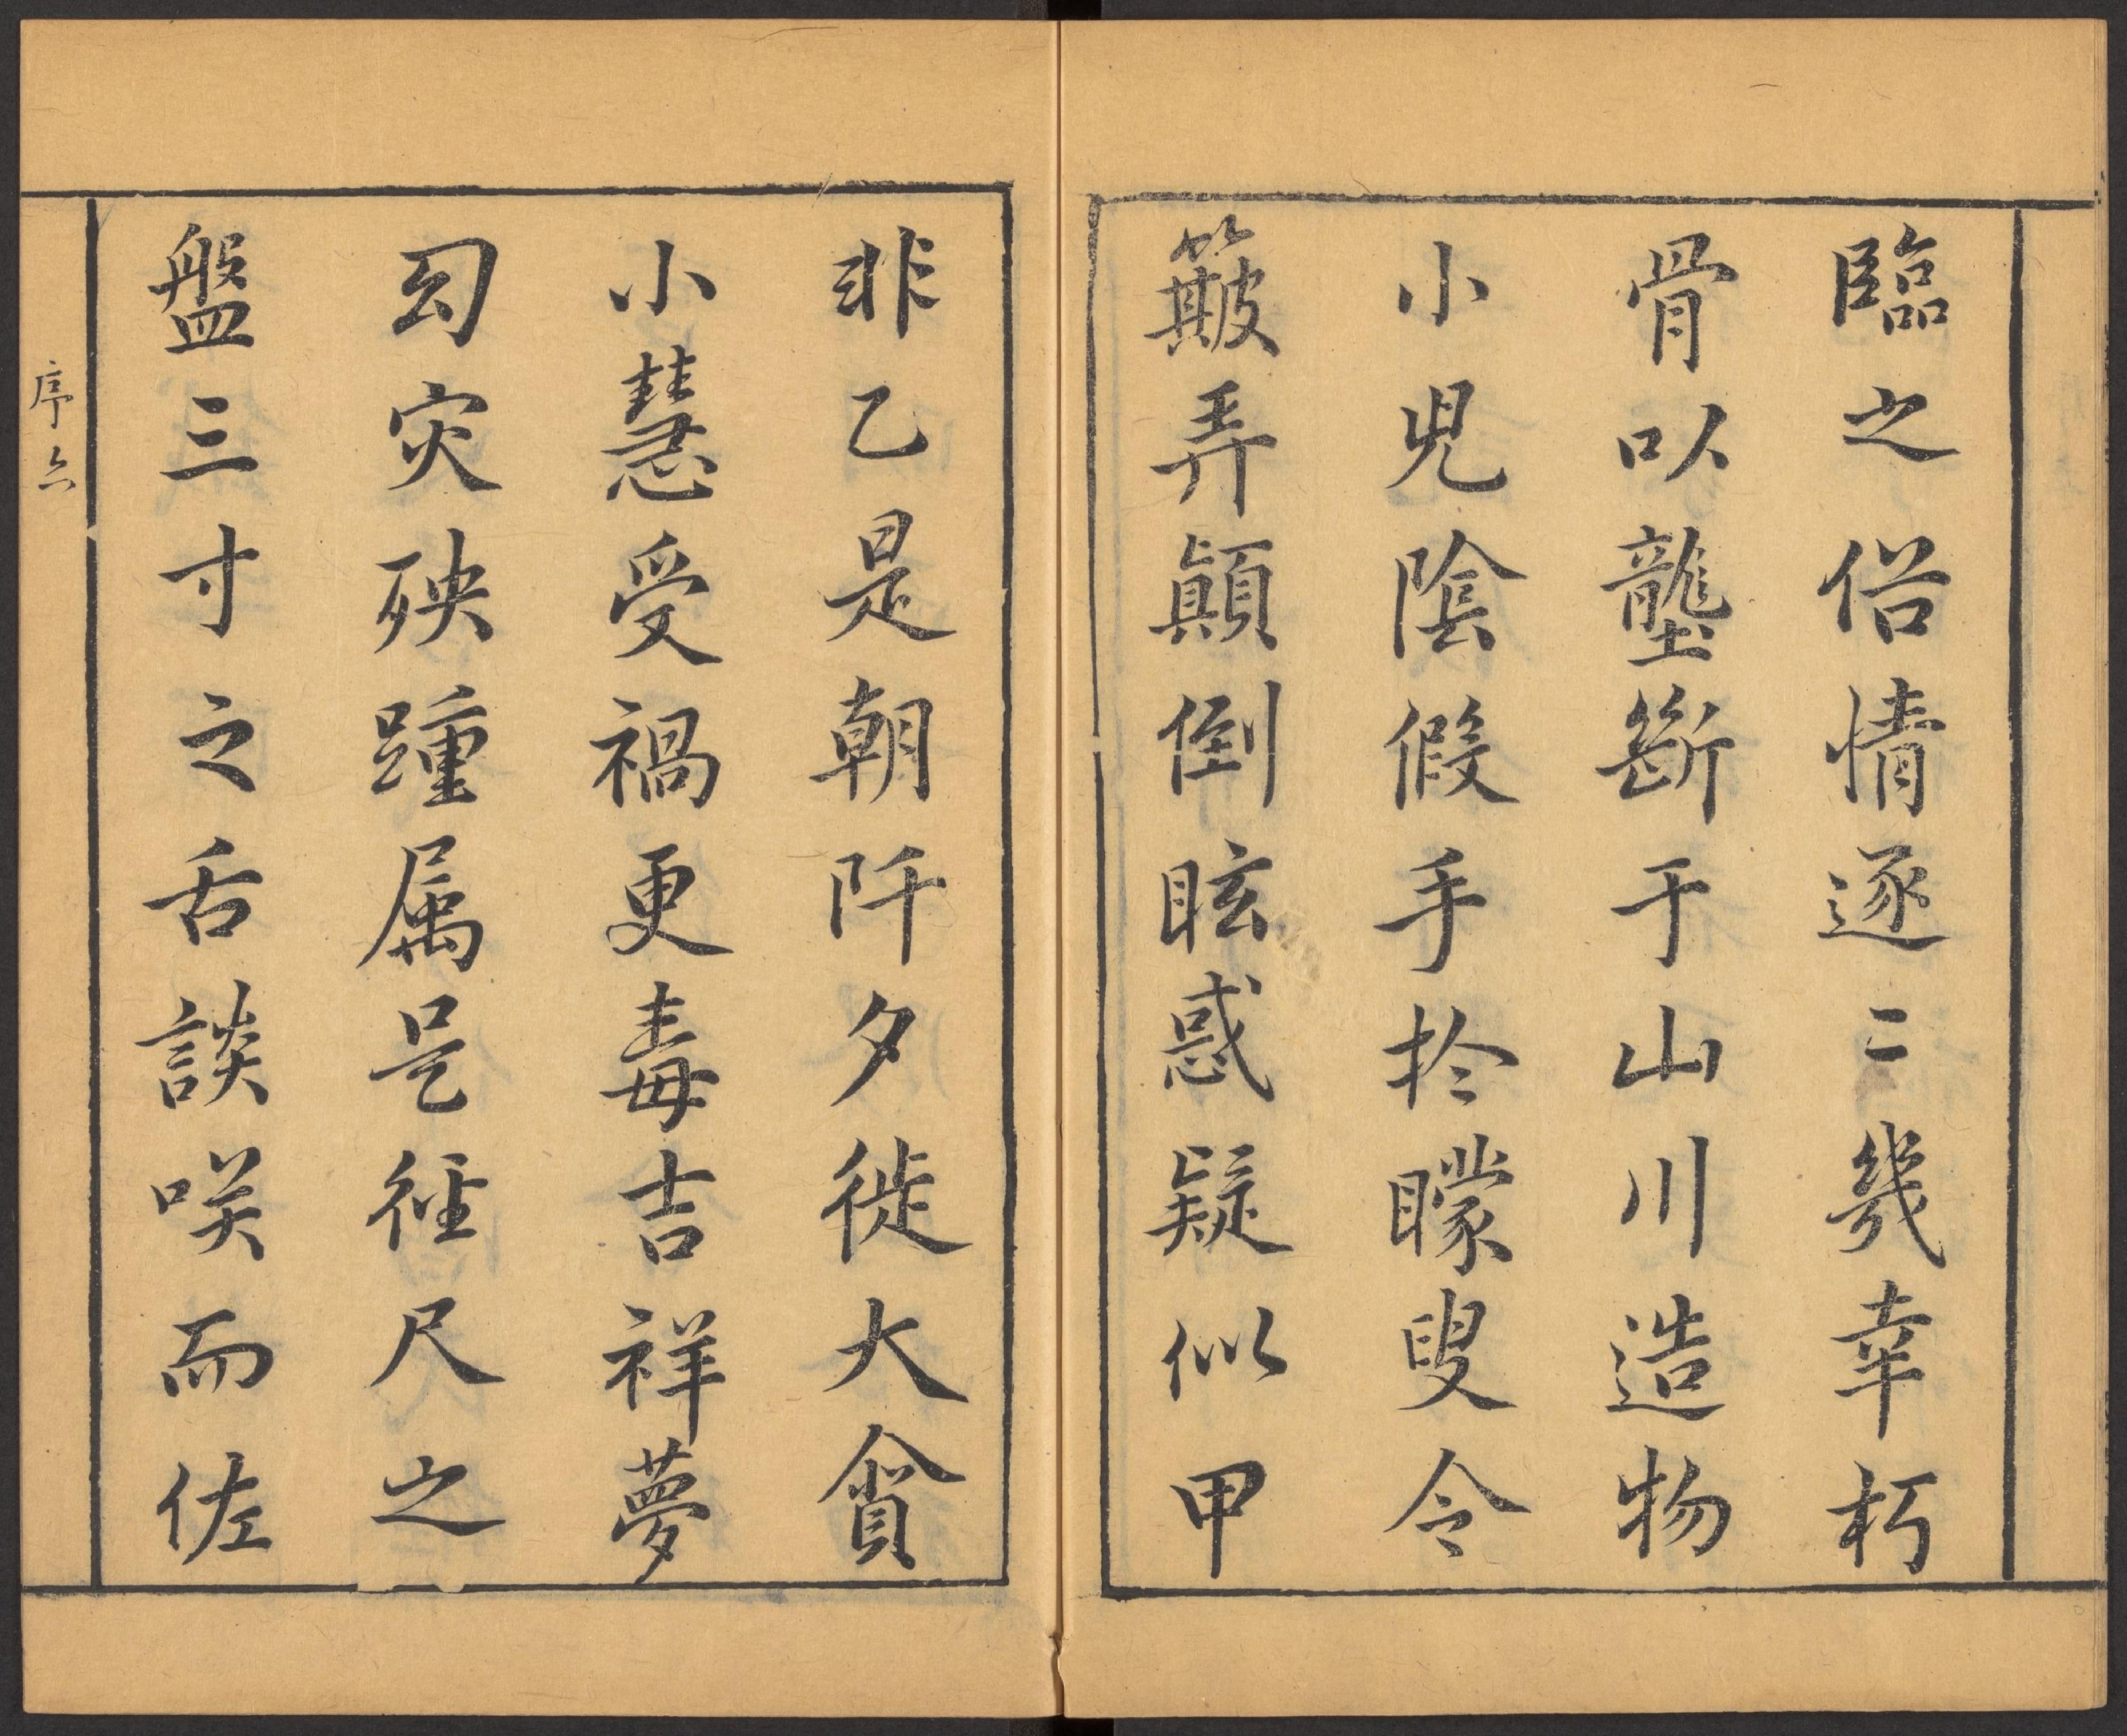 臨之俗情逐二幾幸朽
骨以壟斷于山川造物
小兒陰假手於矇叟令
簸弄顛倒眩惑疑似甲
非乙是朝阡夕徙大貪
小慧受禍更毒吉祥夢
幻灾殃踵属是徑尺之
盤三寸之舌談咲而佐
序六